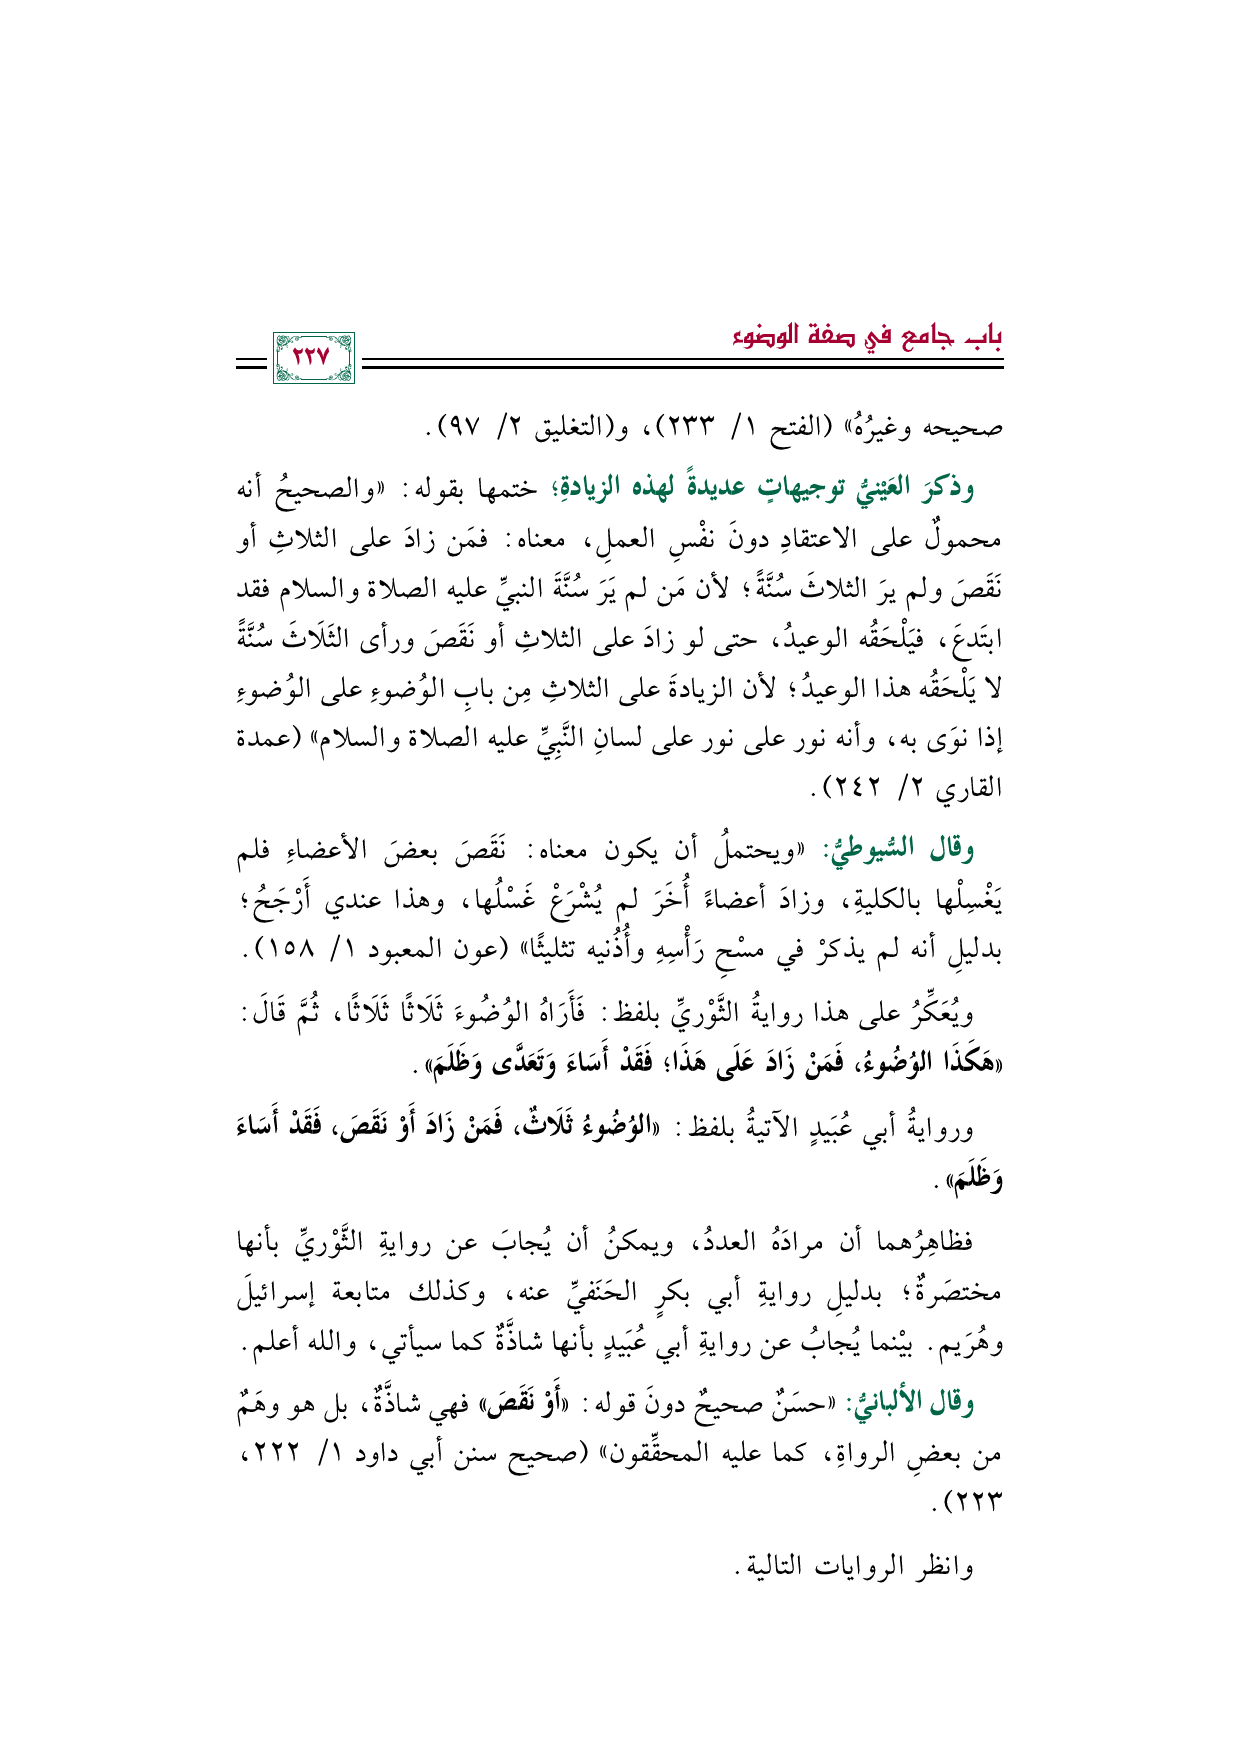 باب جامع في صفة الوضوء
٢٢٧
صحيحه وغيرُهُ» (الفتح ١/ ٢٣٣)، و(التغليق ٢/ ٩٧).
وذكرَ العَيْنيُّ توجيهاتٍ عديدةً لهذه الزيادةِ؛ ختمها بقوله: «والصحيحُ أنه
محمولٌ على الاعتقادِ دونَ نفْسِ العملِ، معناه: فمَن زادَ على الثلاثِ أو
نَقَصَ ولم يرَ الثلاثَ سُنَّةً؛ لأن مَن لم يَرَ سُنَّةَ النبيِّ عليه الصلاة والسلام فقد
ابتَدعَ، فيَلْحَقُه الوعيدُ، حتى لو زادَ على الثلاثِ أو نَقَصَ ورأى الثَلَاثَ سُنَّةً
لا يَلْحَقُه هذا الوعيدُ؛ لأن الزيادةَ على الثلاثِ مِن بابِ الوُضوءِ على الوُضوءِ
إذا نوَى به، وأنه نور على نور على لسانِ النَّبِيِّ عليه الصلاة والسلام» (عمدة
القاري ٢/ ٢٤٢).
وقال السُّيوطيُّ: «ويحتملُ أن يكون معناه: نَقَصَ بعضَ الأعضاءِ فلم
يَغْسِلْها بالكليةِ، وزادَ أعضاءً أُخَرَ لم يُشْرَعْ غَسْلُها، وهذا عندي أَرْجَحُ؛
بدليلِ أنه لم يذكرْ في مسْحِ رَأْسِهِ وأُذُنيه تثليثًا» (عون المعبود ١/ ١٥٨).
ويُعَكِّرُ على هذا روايةُ الثَّوْريِّ بلفظ: فَأَرَاهُ الوُضُوءَ ثَلَاثًا ثَلَاثًا، ثُمَّ قَالَ:
«هَكَذَا الوُضُوءُ، فَمَنْ زَادَ عَلَى هَذَا؛ فَقَدْ أَسَاءَ وَتَعَدَّى وَظَلَمَ».
وروايةُ أبي عُبَيدٍ الآتيةُ بلفظ: «الوُضُوءُ ثَلَاثٌ، فَمَنْ زَادَ أَوْ نَقَصَ، فَقَدْ أَسَاءَ
وَظَلَمَ».
فظاهِرُهما أن مرادَهُ العددُ، ويمكنُ أن يُجابَ عن روايةِ الثَّوْريِّ بأنها
مختصَرةٌ؛ بدليلِ روايةِ أبي بكرٍ الحَنَفيِّ عنه، وكذلك متابعة إسرائيلَ
وهُرَيم. بيْنما يُجابُ عن روايةِ أبي عُبَيدٍ بأنها شاذَّةٌ كما سيأتي، والله أعلم.
وقال الألبانيُّ: «حسَنٌ صحيحٌ دونَ قوله: «أَوْ نَقَصَ» فهي شاذَّةٌ، بل هو وهَمٌ
من بعضِ الرواةِ، كما عليه المحقِّقون» (صحيح سنن أبي داود ١/ ٢٢٢،
٢٢٣).
وانظر الروايات التالية.